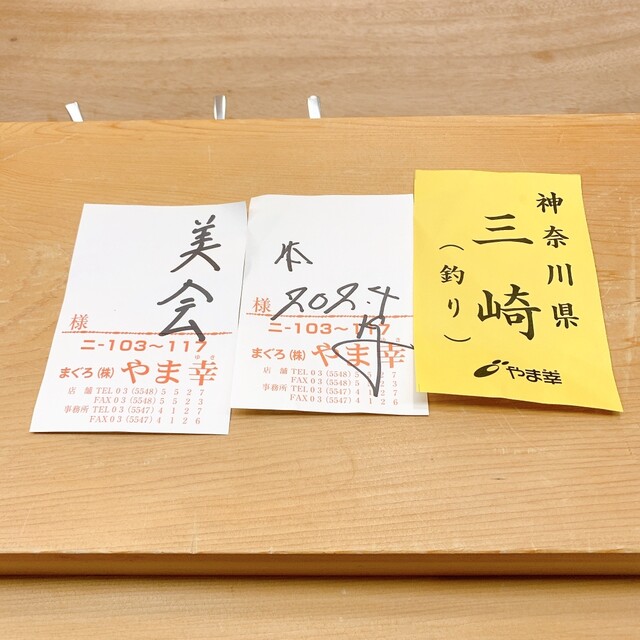 美会
様
ニ-103〜117
まぐろ(株)やま幸
ゆき
店舗 TEL 03(5548)5527
FAX 03(5548)5523
事務所 TEL 03(5547)4127
FAX 03(5547)4126
本
様
202.4
ニ-103〜117
まぐろ(株)やま幸
店舗 TEL 03(5548)5527
FAX 03(5548)5523
事務所 TEL 03(5547)4127
FAX 03(5547)4126
神奈川県
三崎
(釣り)
やま幸